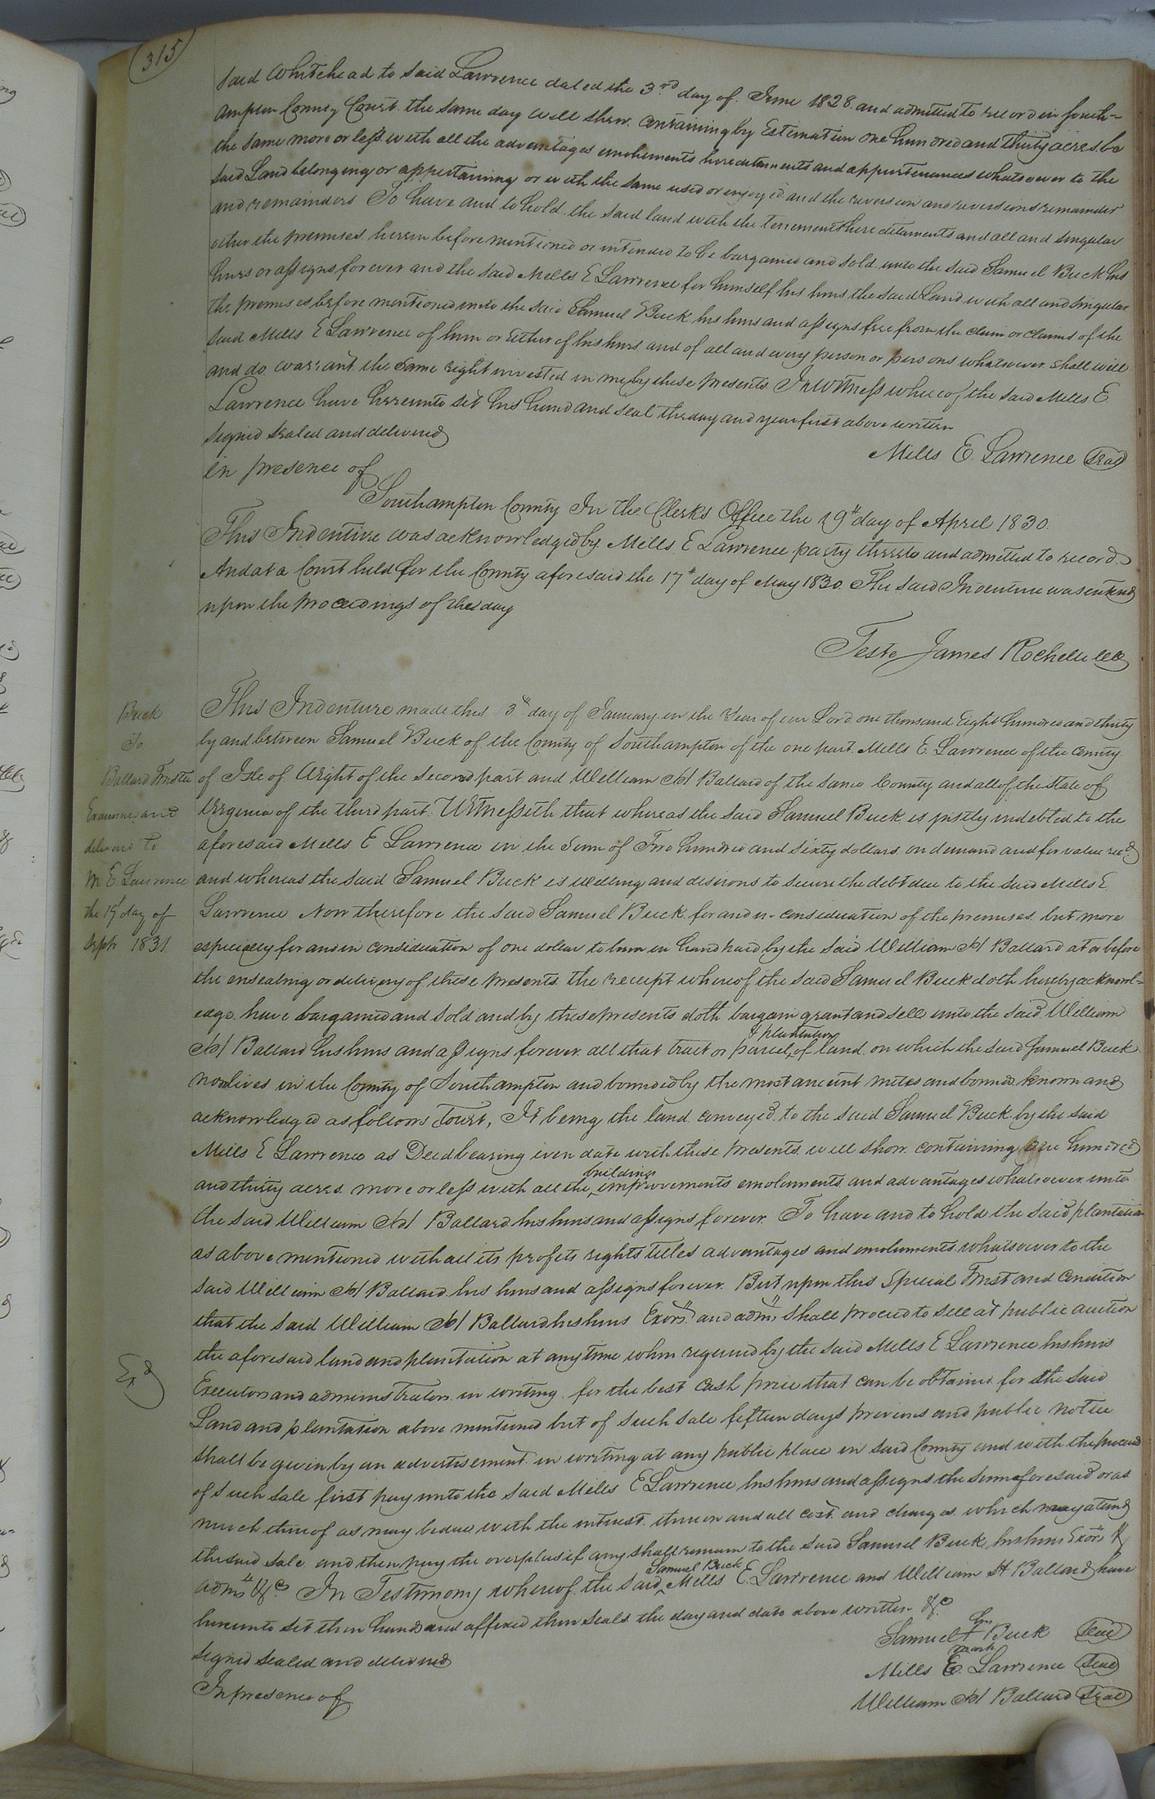 315
said Whitehead to said Lawrence dated the 3rd day of June 1828 and admitted to record in South-
ampton County Court the same day will shew. containing by Estimation one hundred and thirty acres be
the same more or less with all the advantages emoluments hereditaments and appurtenances whatsoever to the
said Land belonging or appertaining or with the same used or enjoyed and the reversion and reversions remainder
and remainders To have and to hold the said land with the tenements hereditaments and all and singular
other the premises herein before mentioned or intended to be bargained and sold unto the said Samuel Buck his
heirs or assigns forever and the said Mills E Lawrence for himself his heirs the said Land with all and singular
the premises before mentioned unto the said Samuel Buck his heirs and assigns free from the claim or claims of the
said Mills E Lawrence of him or either of his heirs and of all and every person or persons whatsoever shall will
and do warrant the same right invested in me by these presents In Witness whereof the said Mills E
Lawrence have hereunto set his hand and seal the day and year first above written
Signed Sealed and delivered
in presence of
Mills E. Lawrence Seal
Southampton County In the Clerks Office the 19th day of April 1830
This Indenture was acknowledged by Mills E Lawrence party thereto and admitted to record
And at a Court held for the County aforesaid the 17th day of May 1830. The said Indenture was entered
upon the proceedings of the day
Teste James Rochelle
Buck
To
Ballard Trustee
Examined and
delivered to
M E Lawrence
the 19th day of
Septr 1831
This Indenture made this 3rd day of January in the Year of our Lord one thousand Eight hundred and thirty
by and between Samuel Buck of the County of Southampton of the one part. Mills E. Lawrence of the County
of Isle of Wight of the second part and William H Ballard of the same County and all of the State of
Virginia of the third part. Witnesseth that whereas the said Samuel Buck is justly indebted to the
aforesaid Mills E Lawrence in the Sum of Two hundred and sixty dollars on demand and for value recd
and whereas the said Samuel Buck is willing and desirous to secure the debt due to the said Mills E
Lawrence Now therefore the said Samuel Buck for and in consideration of the premises but more
especially for and in consideration of one dollar to him in hand paid by the said William H Ballard at or before
the ensealing or delivery of these presents the receipt whereof the said Samuel Buck doth hereby acknowl-
edge have bargained and sold and by these presents doth bargain grant and sell unto the said William
H Ballard his heirs and assigns forever all that tract or parcel & plantation of land on which the said Samuel Buck
now lives in the County of Southampton and bounded by the most ancient metes and bounds known and
acknowledged as follows Towit, It being the land conveyed to the said Samuel Buck by the said
Mills E Lawrence as Deed bearing even date with these presents will show containing One hundred
and thirty acres more or less with all the buildings improvements emoluments and advantages whatsoever unto
the said William H Ballard his heirs and assigns forever. To have and to hold the said plantation
as above mentioned with all its profits rights titles advantages and emoluments whatsoever to the
said William H Ballard his heirs and assigns forever. But upon this Special Trust and Condition
that the said William H Ballard his heirs Exors and admrs shall proceed to sell at public auction
the aforesaid land and plantation at any time when required by the said Mills E Lawrence his heirs
Exd
Executors and administrators in writing for the best cash price that can be obtained for the said
Land and plantation above mentioned but of such sale fifteen days previous and public notice
shall be given by an advertisement in writing at any public place in said County and with the proceeds
of such sale first pay unto the said Mills E Lawrence his heirs and assigns the sum aforesaid or as
much thereof as may be due with the interest thereon and all cost and charges which may attend
the said sale and then pay the overplus if any shall remain to the said Samuel Buck, his heirs Exors &
admrs &c. In Testimony whereof the said Samuel Buck Mills E. Lawrence and William H Ballard have
hereunto set their hands and affixed their seals the day and date above written &c
Signed Sealed and delivered
In presence of
Samuel his + mark Buck Seal
Mills E. Lawrence Seal
William H Ballard Seal